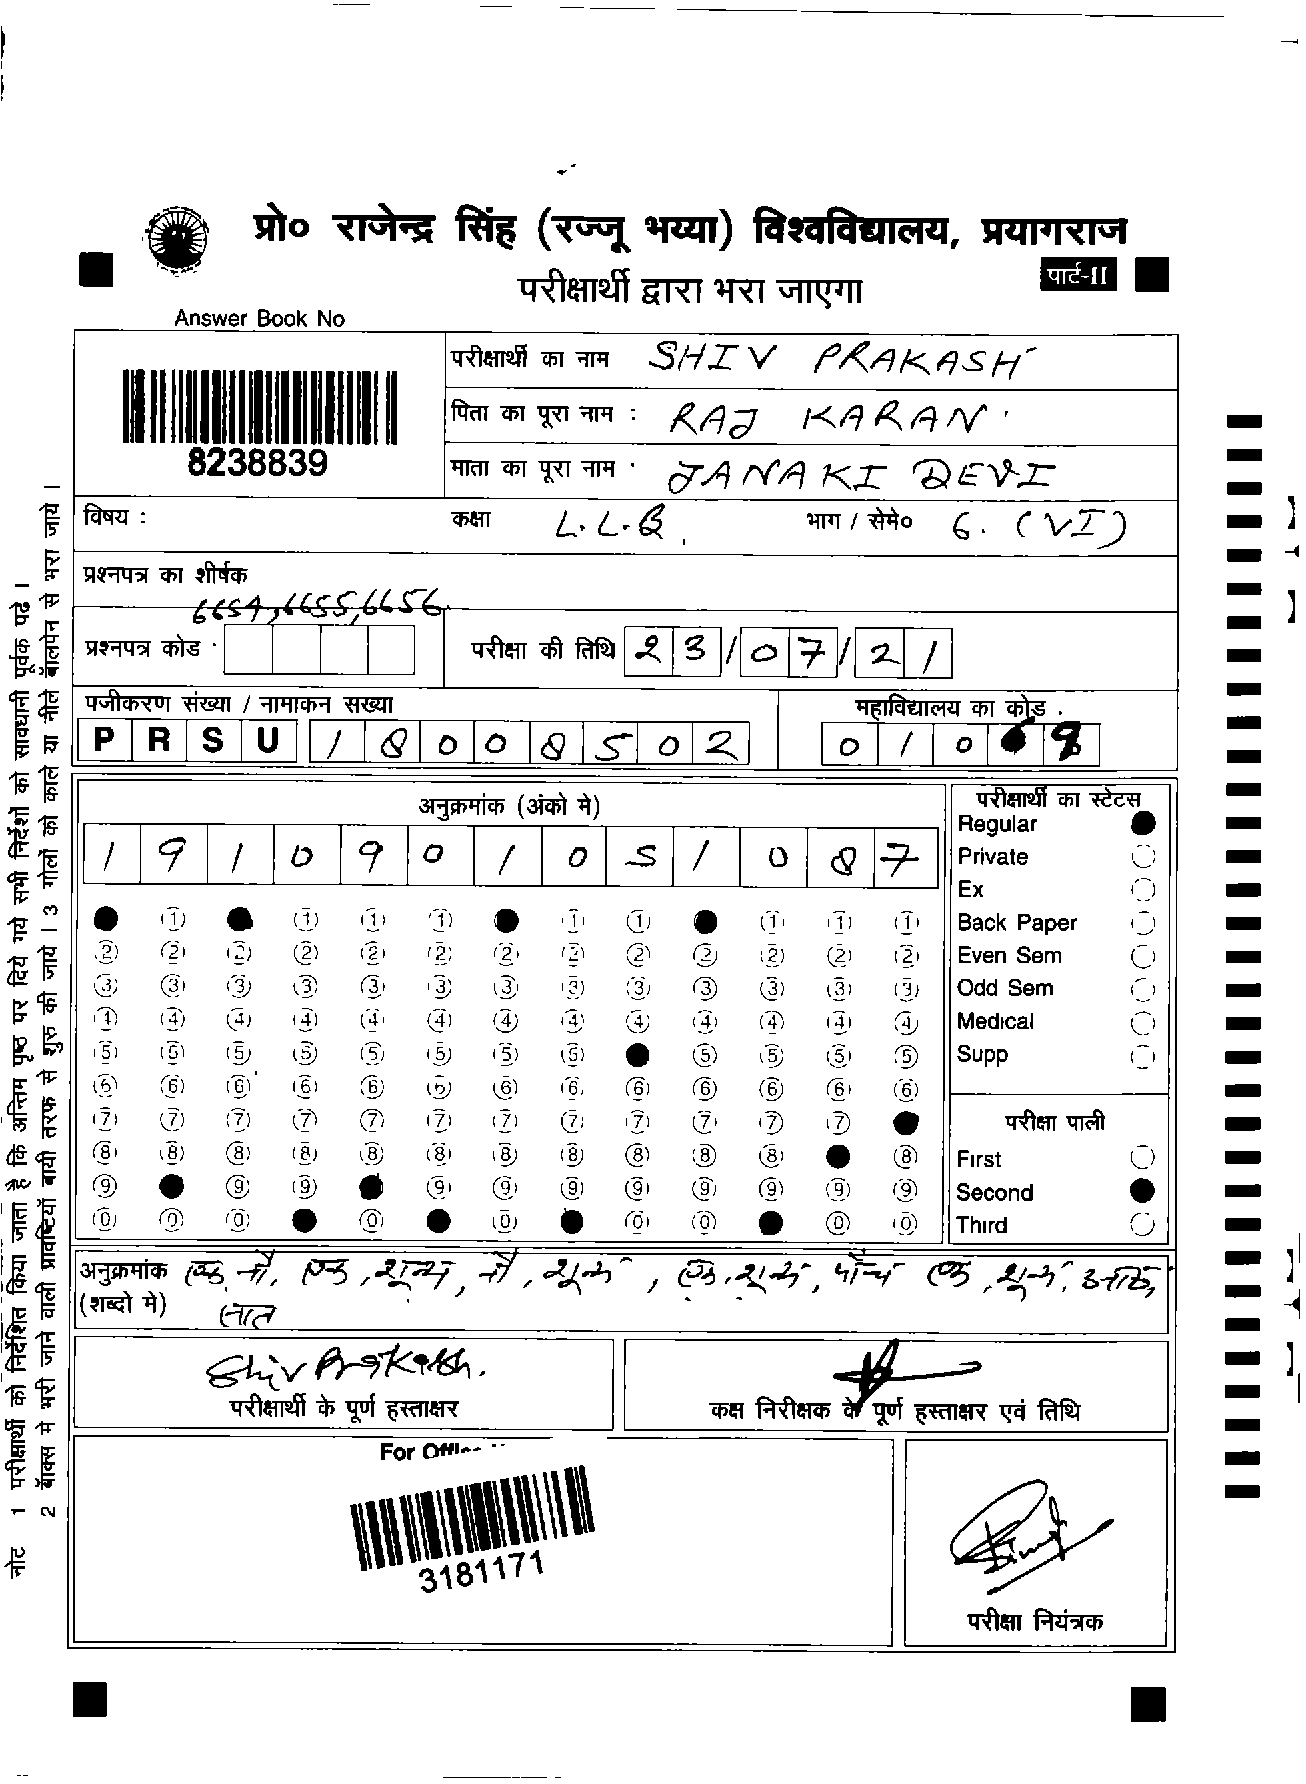 प्रो० राजेन्द्र सिंह (रज्जू भय्या) विश्वविद्यालय, प्रयागराज
परीक्षार्थी द्वारा भरा जाएगा
पार्ट-II
Answer Book No
8238839
परीक्षार्थी का नाम SHIV PRAKASH
पिता का पूरा नाम : RAJ KARAN
माता का पूरा नाम JANAKI DEVI
विषय : कक्षा L.L.B. भाग / सेमे० 6. (VI)
प्रश्नपत्र का शीर्षक
6654,6655,6656
प्रश्नपत्र कोड परीक्षा की तिथि 23/07/21
पजीकरण संख्या / नामाकन सख्या
PRSU 18008502
महाविद्यालय का कोड
010
अनुक्रमांक (अंको मे)
1910901051087
1 1 1 1 1 1 1 1 1
2 2 2 2 2 2 2 2 2 2 2 2 2
3 3 3 3 3 3 3 3 3 3 3 3 3
4 4 4 4 4 4 4 4 4 4 4 4 4
5 5 5 5 5 5 5 5 5 5 5 5
6 6 6 6 6 6 6 6 6 6 6 6 6
7 7 7 7 7 7 7 7 7 7 7 7
8 8 8 8 8 8 8 8 8 8 8 8
9 9 9 9 9 9 9 9 9 9 9
0 0 0 0 0 0 0 0 0
परीक्षार्थी का स्टेटस
Regular
Private
Ex
Back Paper
Even Sem
Odd Sem
Medical
Supp
परीक्षा पाली
First
Second
Third
अनुक्रमांक एक नौ, एक, शून्य, नौ, शून्य, एक, शून्य, पाँच एक, शून्य, आठ,
(शब्दो मे) सात
Shiv Prakash.
परीक्षार्थी के पूर्ण हस्ताक्षर
कक्ष निरीक्षक के पूर्ण हस्ताक्षर एवं तिथि
For
3181171
परीक्षा नियंत्रक
नोट 1 परीक्षार्थी को निर्देशित किया जाता है कि अन्तिम पृष्ठ पर दिये गये सभी निर्देशों को सावधानी पूर्वक पढे ।
2 बॉक्स मे भरी जाने वाली प्रविष्टियों बायी तरफ से शुरु की जाये । 3 गोलों को काले या नीले बॉलपेन से भरा जाये ।